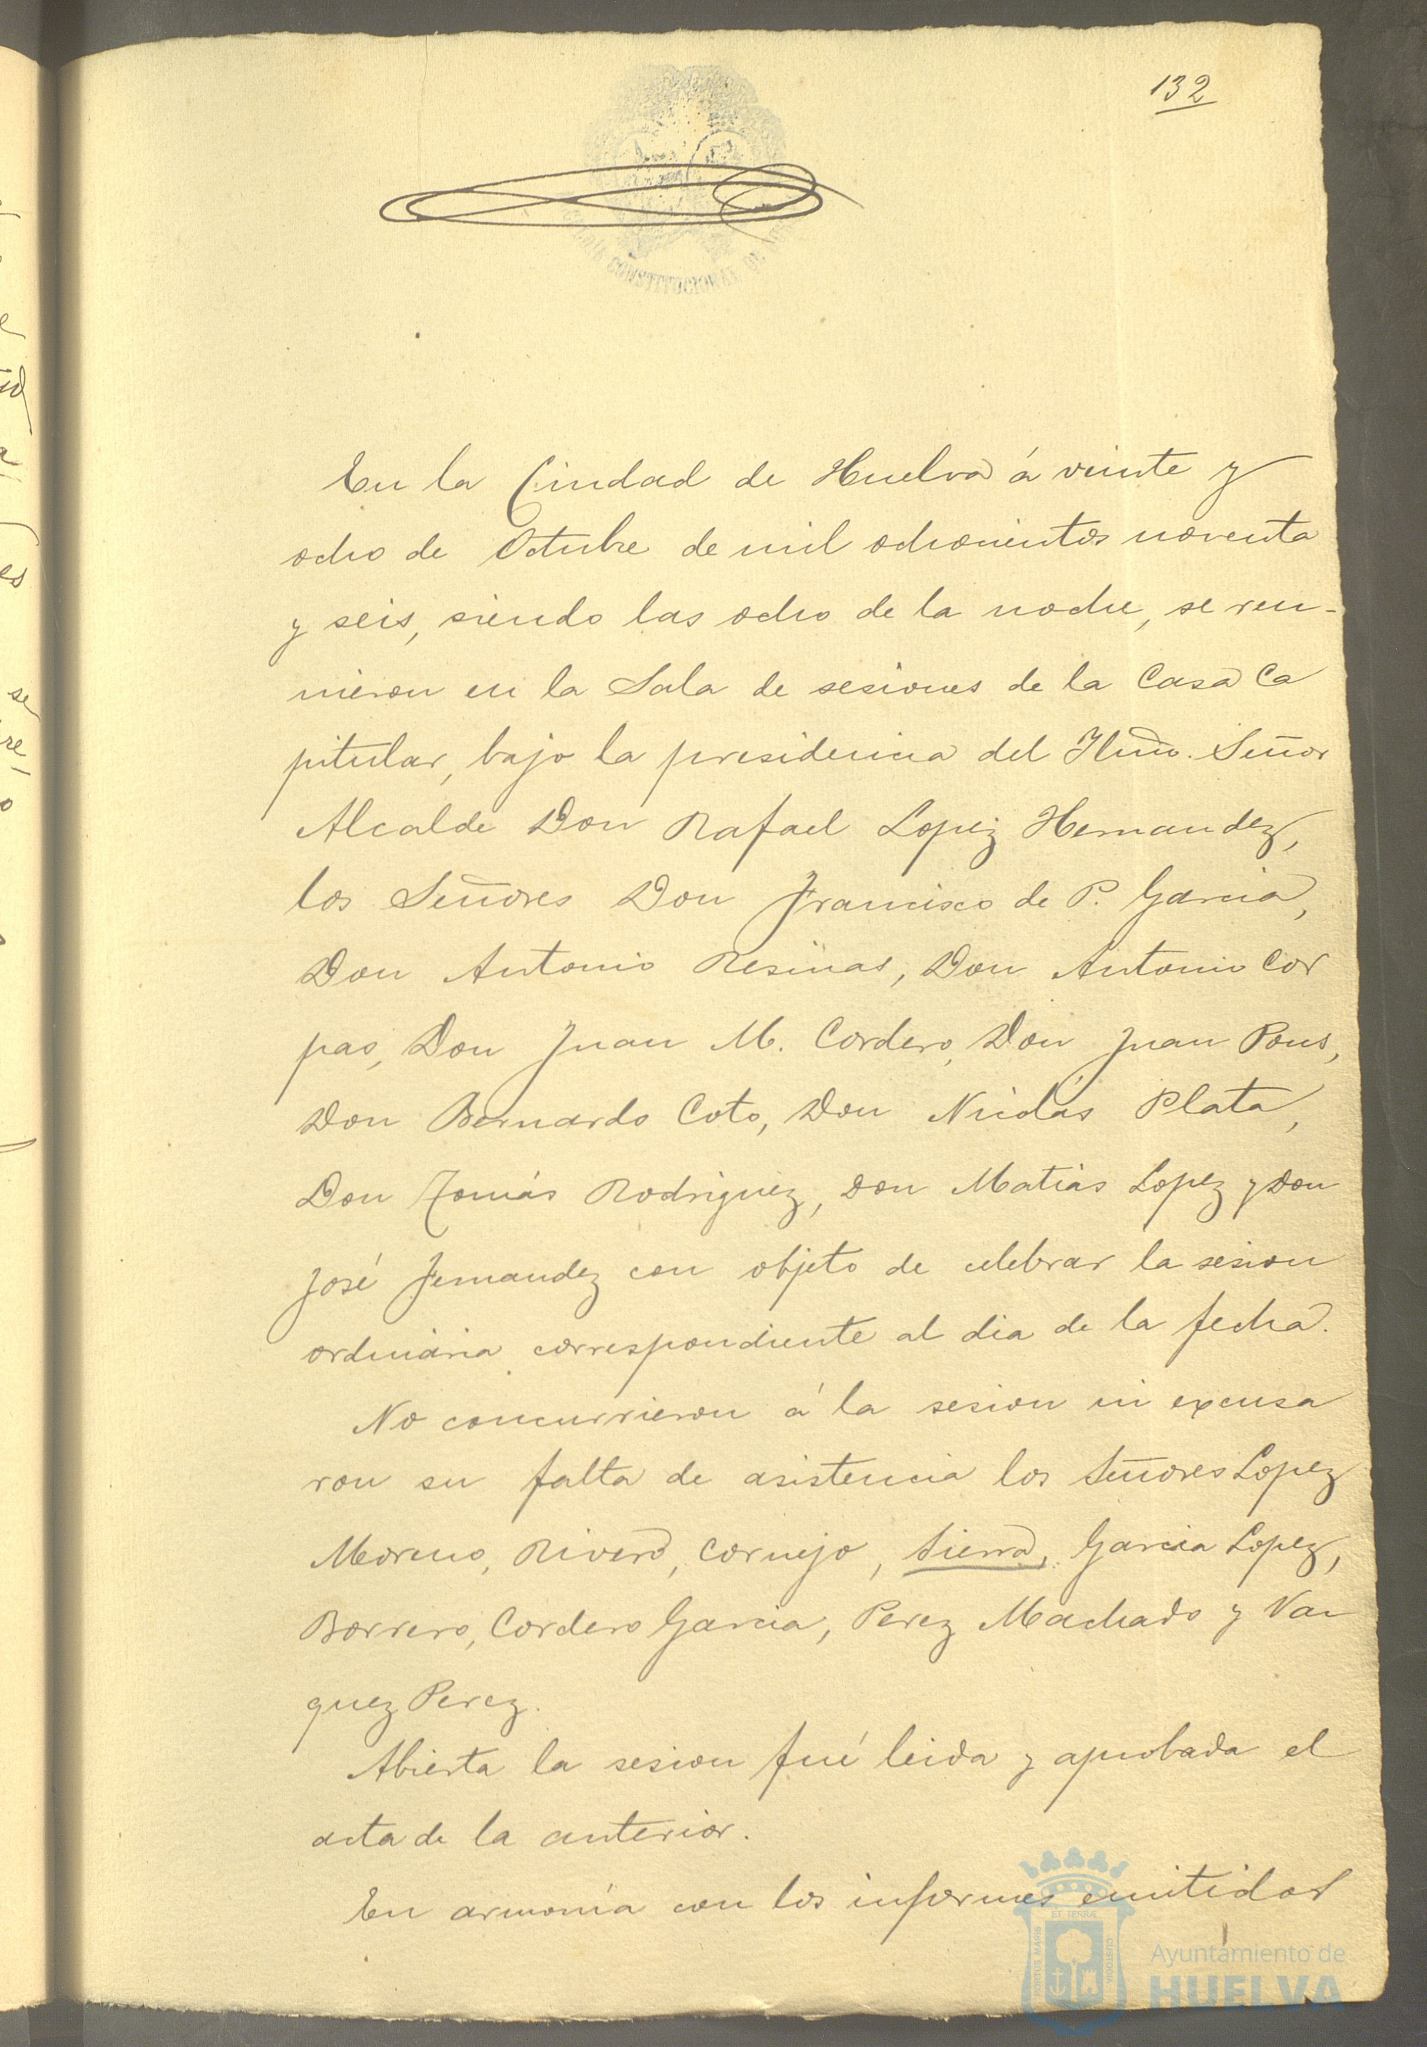 132
CONSTITUCIONAL DE
En la Ciudad de Huelva á veinte y
ocho de Octubre de mil ochocientos noventa
y seis, siendo las ocho de la noche, se reu-
nieron en la Sala de sesiones de la Casa Ca
pitular, bajo la presidencia del Ilmo. Señor
Alcalde Don Rafael Lopez Hernandez,
los Señores Don Francisco de P. Garcia,
Don Antonio Resinas, Don Antonio Cor
pas, Don Juan M. Cordero, Don Juan Pons,
Don Bernardo Coto, Don Nicolás Plata,
Don Tomás Rodriguez, Don Matias Lopez y Don
José Fernandez con objeto de celebrar la sesion
ordinaria correspondiente al dia de la fecha.
No concurrieron á la sesion ni excusa
ron su falta de asistencia los Señores Lopez
Moreno, Rivero, Cornejo, Sierra, Garcia Lopez,
Borrero, Cordero Garcia, Perez Machado y Vaz
quez Perez.
Abierta la sesion fué leida y aprobada el
acta de la anterior.
En armonía con los informes emitidos
PORTUS MARIS
ET TERRÆ
CUSTODIA
Ayuntamiento de
HUELVA